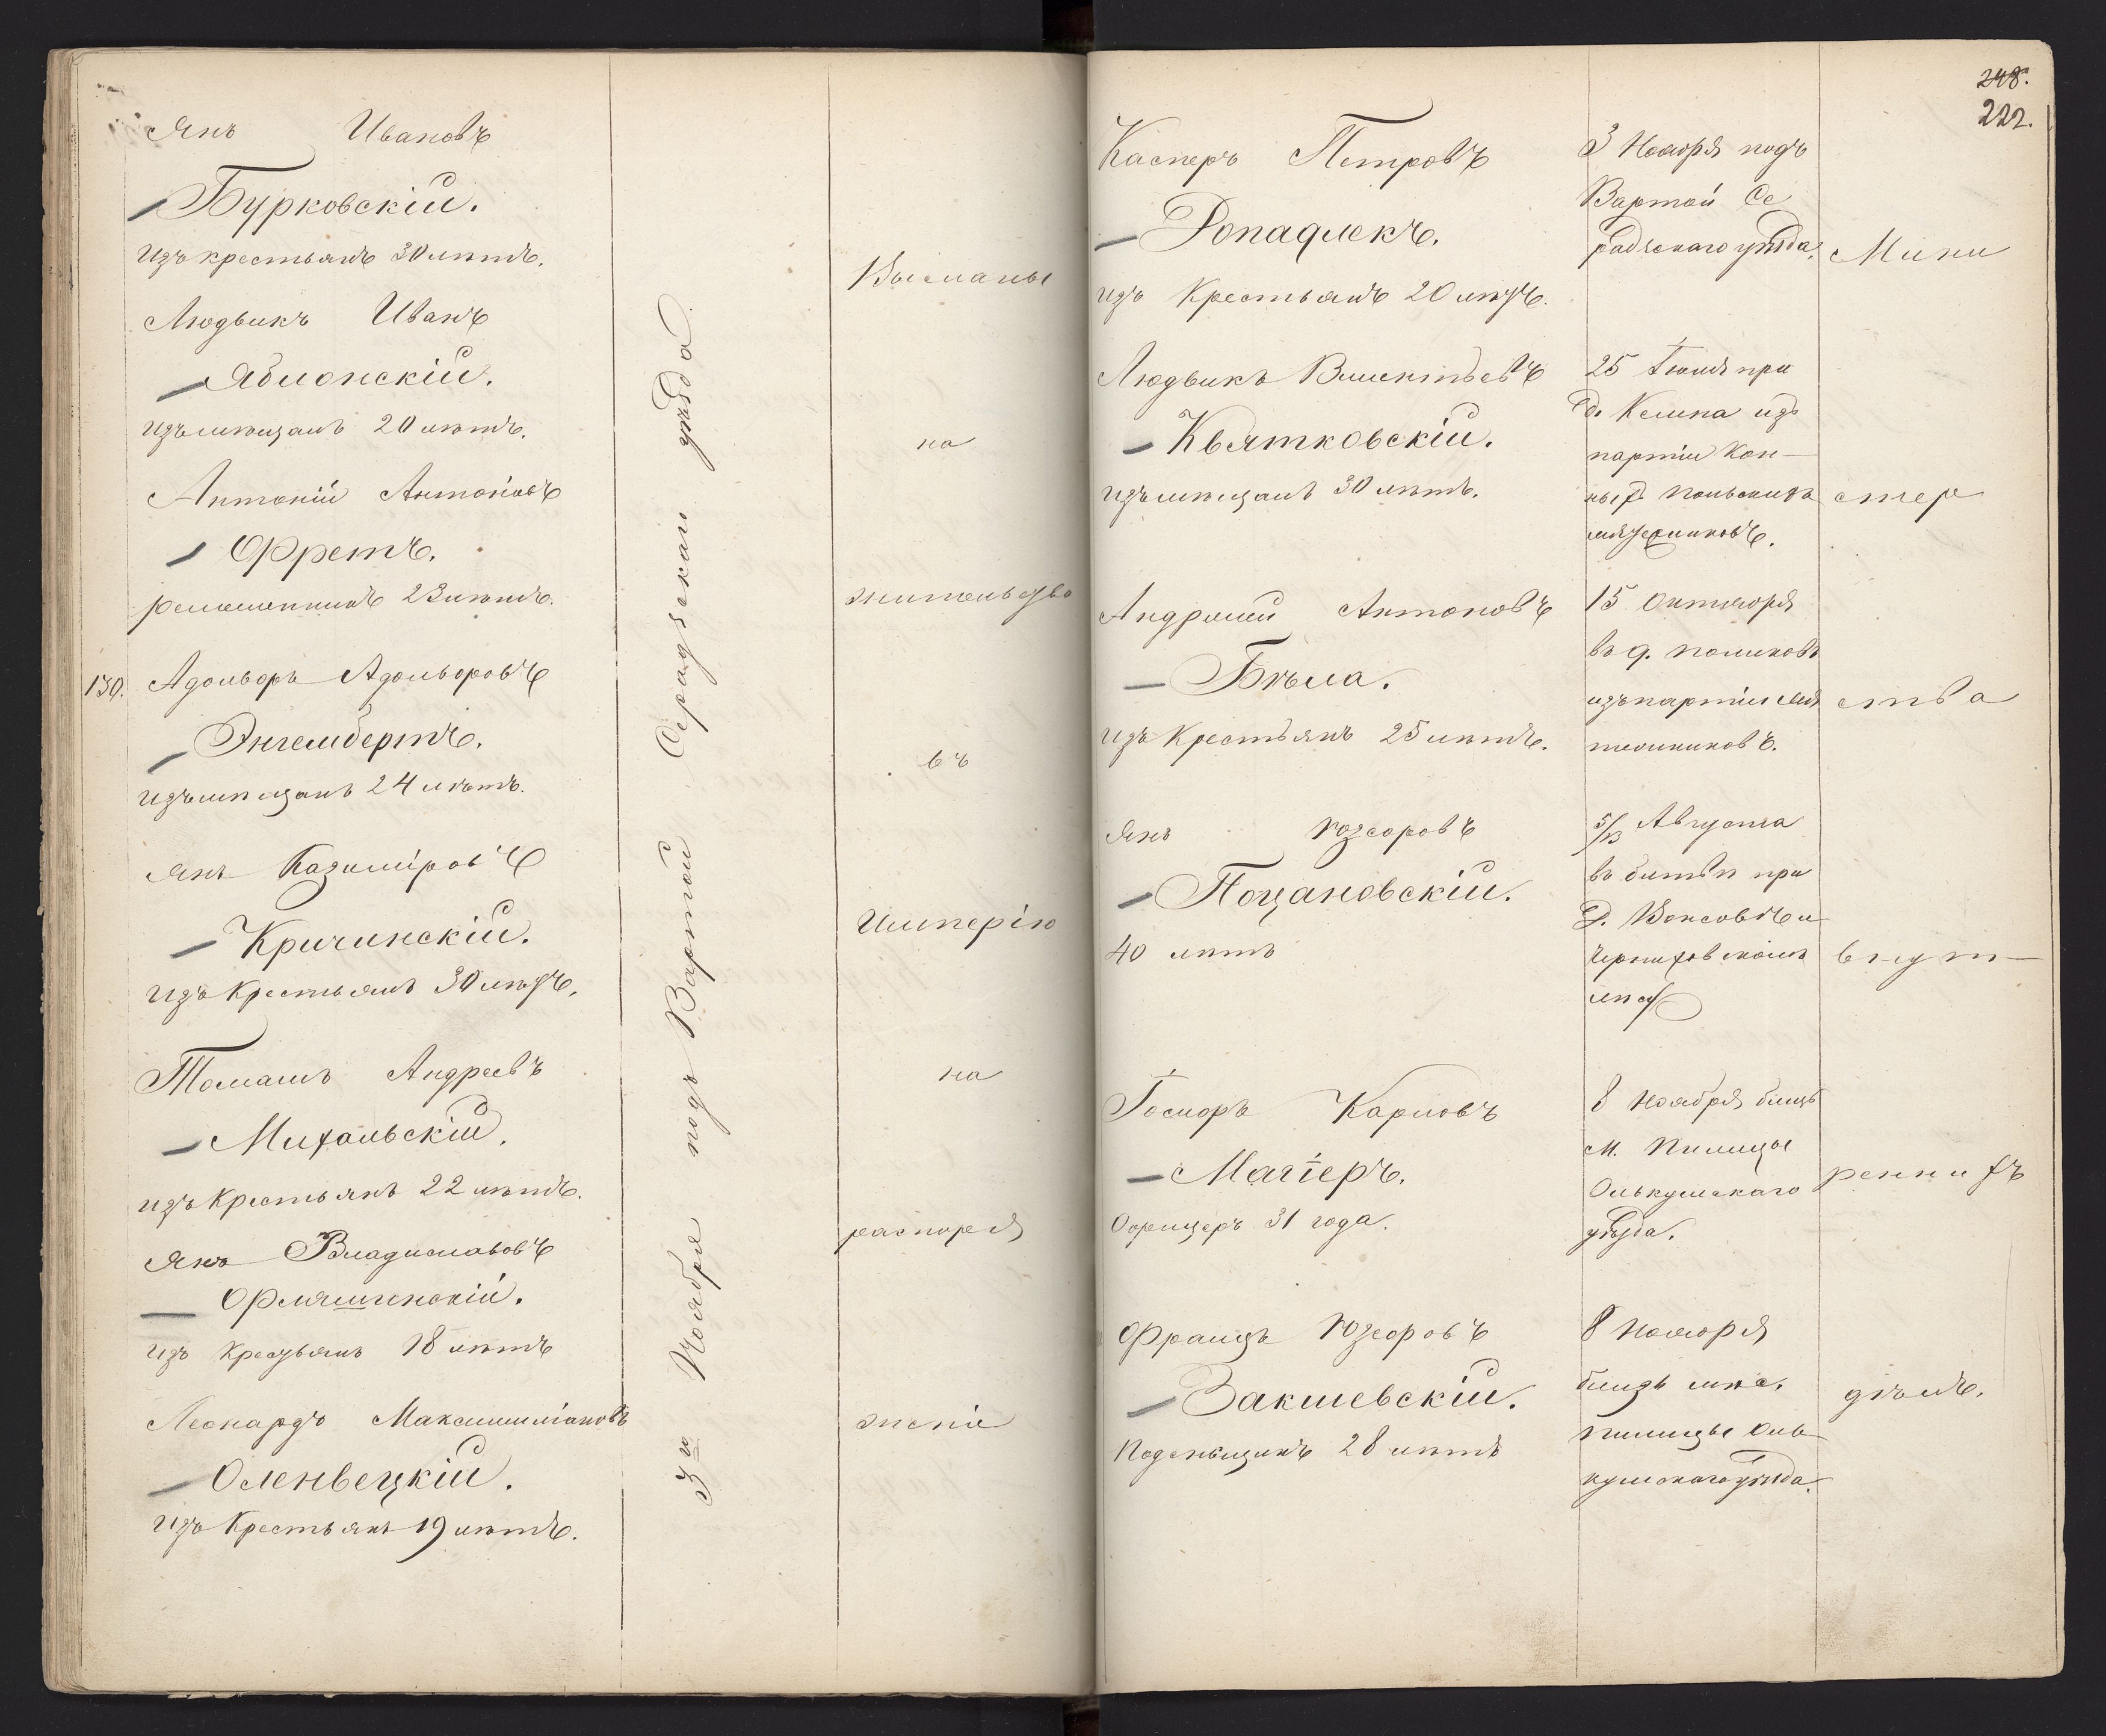 Янъ Ивановъ
Бурковскій.
изъ крестьянъ 30 лѣтъ.
Людвикъ Иванъ
Яблонскій.
изъ мѣщанъ 20 лѣтъ.
Антоній Антоновъ
Фретъ.
ремесленникъ 23 лѣтъ.
130. Адольфъ Адольфовъ
Энгельбертъ.
изъ мѣщанъ 24 лѣтъ.
Янъ Казиміровъ
Кричинскій.
изъ Крестьянъ 30 лѣтъ.
Томашъ Андреевъ
Михальскій.
изъ Крестьянъ 22 лѣтъ.
Янъ Владиславовъ
изъ Крестьянъ 18 лѣтъ
Леонардъ Максимиліановъ
Оленвецкій.
изъ Крестьянъ 19 лѣтъ.
3го Ноября подъ Вартой Серадзскаго уѣзда
Высланы
на
жительство
въ
Имперію
на
распоря
женіе
248.
222.
Касперъ Петровъ
Ропадлекъ.
изъ Крестьянъ 20 лѣтъ.
Людвикъ Викентьевъ
Квятковскій.
изъ мѣщанъ 30 лѣтъ.
Андрей Антоновъ
Бѣла.
изъ Крестьянъ 25 лѣтъ.
Янъ Юзефовъ
Поцановскій.
40 лѣтъ
Іосифъ Карловъ
Магіеръ.
Офицеръ 31 года.
Францъ Юзефовъ
Закшевскій.
Поденьщикъ 28 лѣтъ
3 Ноября подъ
Вартой Се
радзскаго уѣзда.
25 Іюня при
д. Келина изъ
партіи Кон-
ныхъ польскихъ
мятежниковъ.
15 Октября
въ д. поликовъ
изъ партіи мя
тежниковъ.
5/13 Августа
въ битвѣ при
Д. Воксовѣ и
лѣсу
8 Ноября близъ
м. Пилицы
Олькушскаго
уѣзда.
8 Ноября
близъ мѣс.
пилицы Оль
кушскаго уѣзда.
Мини
стер
ства
внут-
реннихъ
дѣлъ.